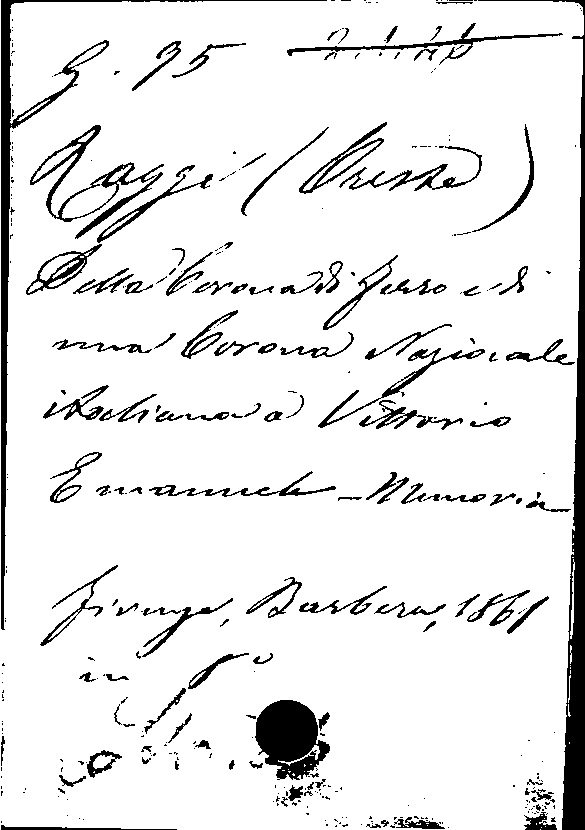 G. 75
Raggi (Oreste)
Della Corona di ferro e di
una Corona Nazionale
italiana a Vittorio
Emanuele - Memoria
Firenze, Barbera, 1861
in 8°